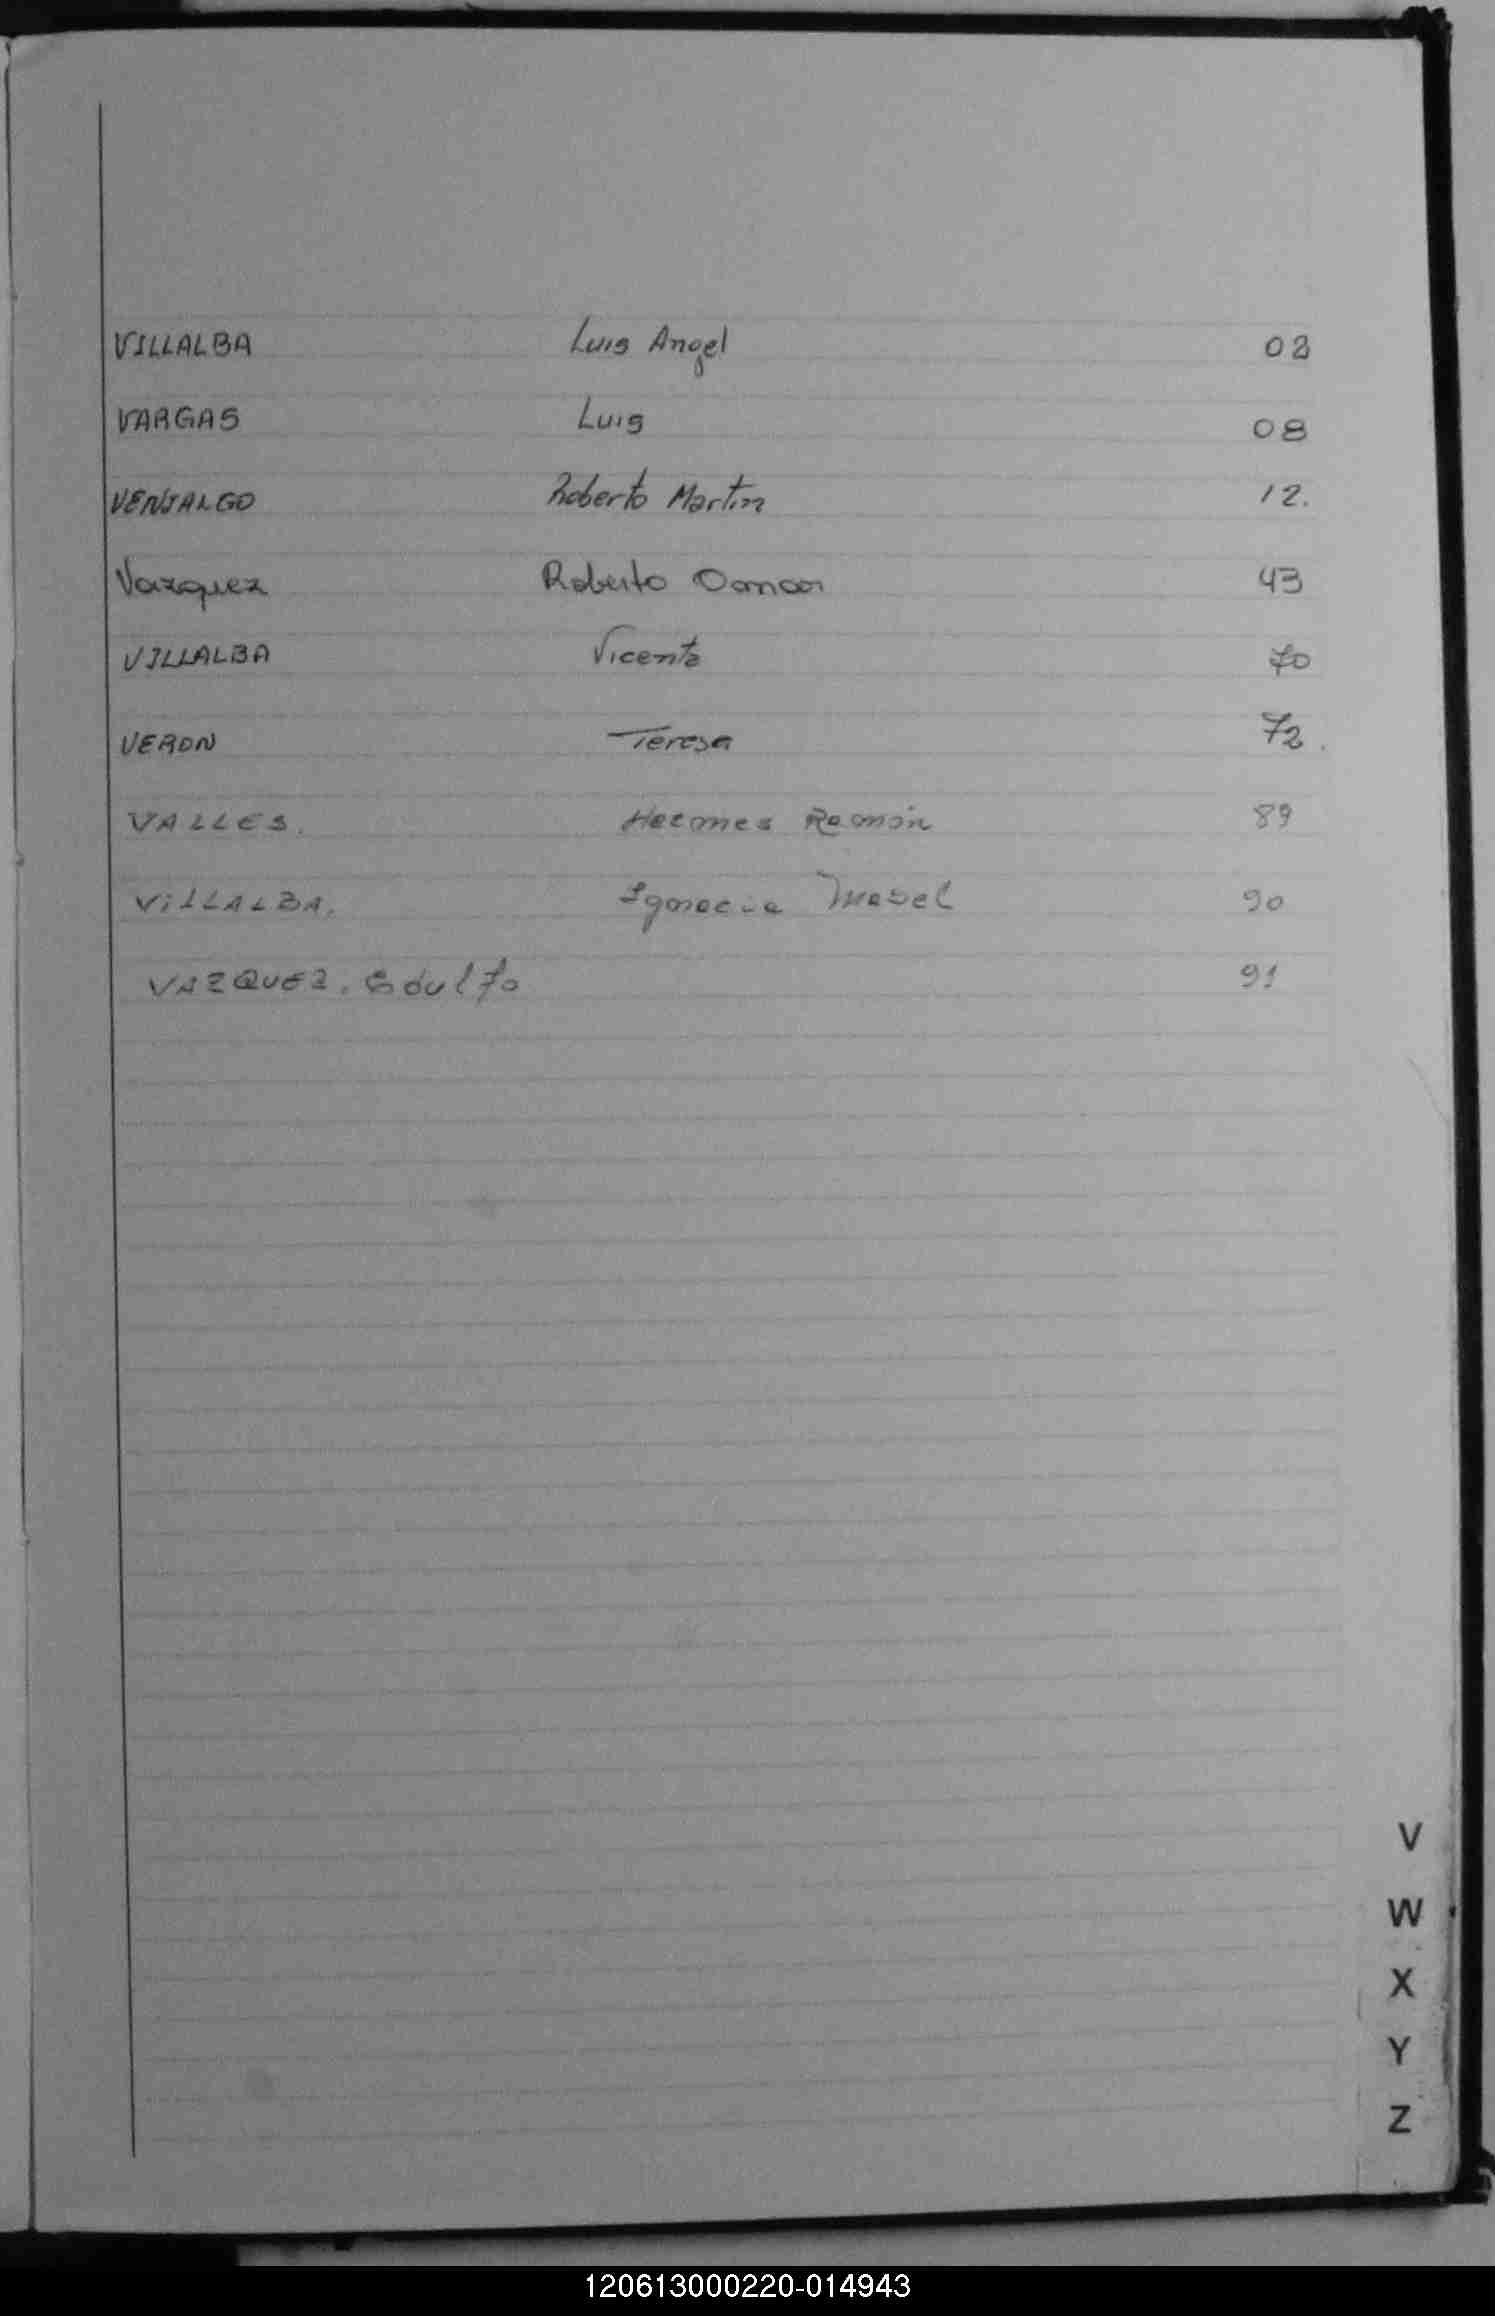 VILLALBA Luis Angel 02
VARGAS Luis 08
VENIALGO Roberto Martin 12.
Vazquez Roberto Omar 43
VILLALBA Vicenta 70
VERON Teresa 72.
VALLES. Hermes Ramón 89
ViLLALBA. Ignacia Mabel 90
VAZQUEZ. Edulfo 91
V
W
X
Y
Z
120613000220-014943